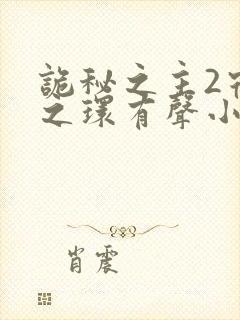 詭秘之主2
之環有聲小
肖震